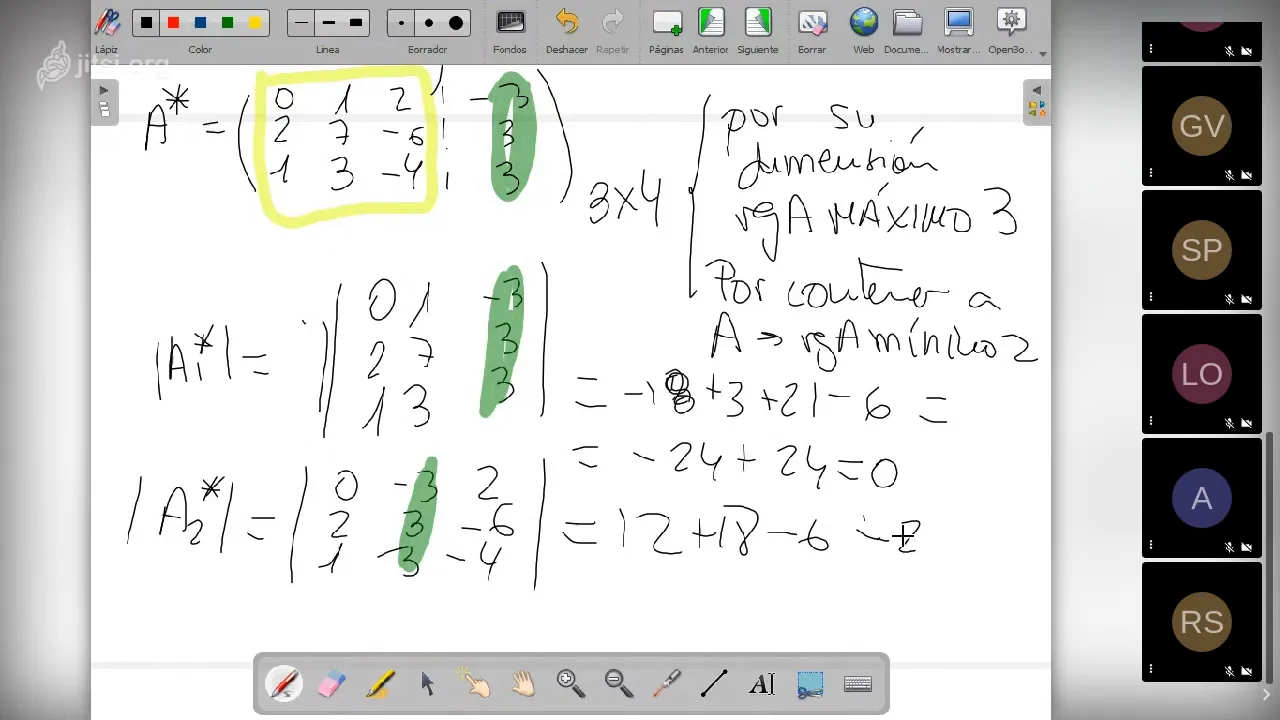 Lápiz Color Linea Borrador Fondos Deshacer Repetir Páginas Anterior Siguiente Borrar Web Docume... Mostrar... Open3o...
jitsi.org
A* = ( 0 1 2 ¦ -3
2 7 -6 ¦ 3
1 3 -4 ¦ 3 ) 3x4
por su
dimensión
rgA MÁXIMO 3
Por contener a
A → rgA mínimo 2
|A1*| = | 0 1 -3
2 7 3
1 3 3 | = -18 + 3 + 21 - 6 =
= -24 + 24 = 0
|A2*| = | 0 -3 2
2 3 -6
1 3 -4 | = 12 + 18 - 6
GV
SP
LO
A
RS
AI